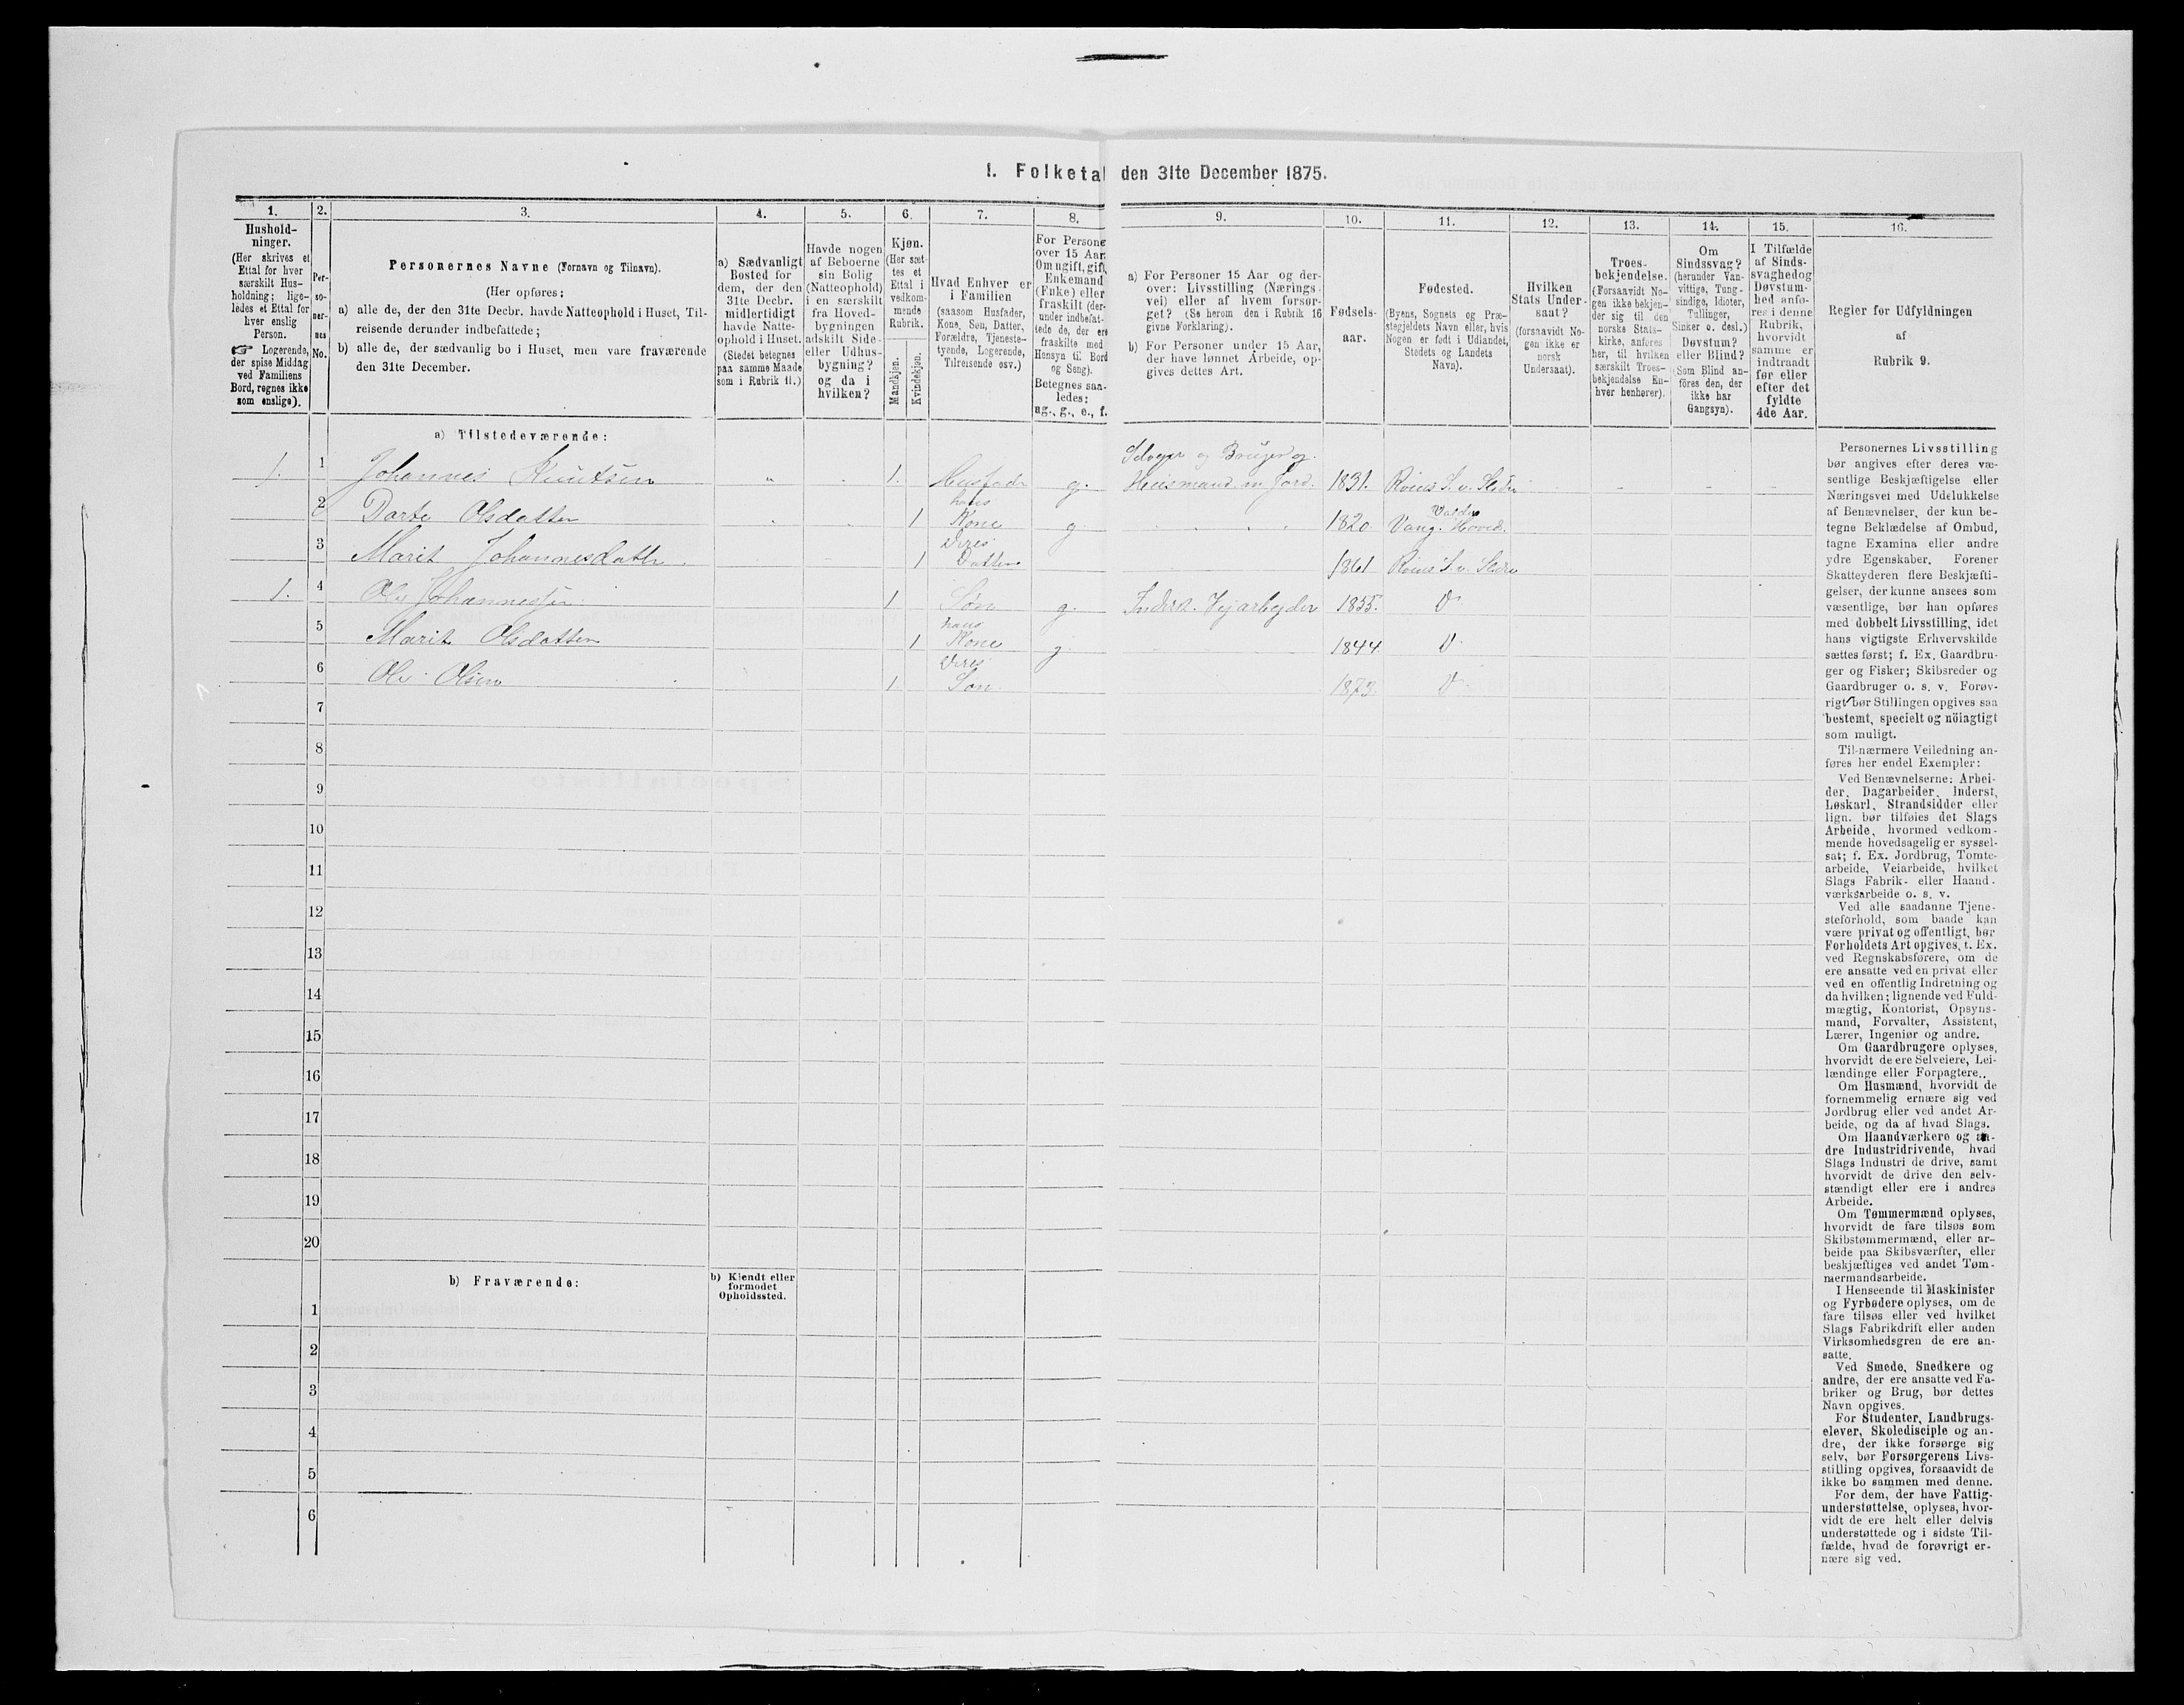 1. Folketal den 31te December 1875.
1.
2.
3.
4.
5.
6.
7.
8.
9.
10.
11.
12.
13.
14.
15.
16.
Hushold-
ninger.
(Her skrives et
Ettal for hver
særskilt Hus-
holdning; lige-
ledes et Ettal for
hver enslig
Person.
☞ Logerende,
der spise Middag
ved Familiens
Bord, regnes ikke
som enslige).
Per-
so-
ner-
nes
No.
Personernes Navne (Fornavn og Tilnavn).
(Her opføres:
a) alle de, der den 31te Decbr. havde Natteophold i Huset, Til-
reisende derunder indbefattede;
b) alle de, der sædvanlig bo i Huset, men vare fraværende
den 31te December.
a) Sædvanligt
Bosted for
dem, der den
31te Decbr.
midlertidigt
havde Natte-
ophold i Huset.
(Stedet betegnes
paa samme Maade
som i Rubrik 11.)
Havde nogen
af Beboerne
sin Bolig
(Natteophold)
i en særskilt
fra Hoved-
bygningen
adskilt Side-
eller Udhus-
bygning?
og da i
hvilken?
Kjøn.
(Her sæt-
tes et
Ettal i
vedkom-
mende
Rubrik.
Mandkjøn.
Kvindekjøn.
Hvad Enhver er
i Familien
(saasom Husfader,
Kone, Søn, Datter,
Forældre, Tjeneste-
tyende, Logerende,
Tilreisende osv.)
For Personer
over 15 Aar:
Om ugift, gift,
Enkemand
(Enke) eller
fraskilt (der-
under indbefat-
tede de, der ere
fraskilte med
Hensyn til Bord
og Seng).
Betegnes saa-
ledes:
ug., g., e., f.
a) For Personer 15 Aar og der-
over: Livsstilling (Nærings-
vei) eller af hvem forsør-
get? (Se herom den i Rubrik 16
givne Forklaring).
b) For Personer under 15 Aar,
der have lønnet Arbeide, op-
gives dettes Art.
Fødsels-
aar.
Fødested.
(Byens, Sognets og Præ-
stegjeldets Navn eller, hvis
Nogen er født i Udlandet,
Stedets og Landets
Navn).
Hvilken
Stats Under-
saat?
(forsaavidt No-
gen ikke er
norsk
Undersaat).
Troes-
bekjendelse.
(Forsaavidt No-
gen ikke bekjen-
der sig til den
norske Stats-
kirke, anføres
her, til hvilken
særskilt Troes-
bekjendelse En-
hver henhører).
Om
Sindssvag?
(herunder Van-
vittige, Tung-
sindige, Idioter,
Tullinger,
Sinker o. desl.)
Døvstum?
eller Blind?
(Som Blind an-
føres den, der
ikke har
Gangsyn).
I Tilfælde
af Sinds-
svaghed og
Døvstum-
hed anfø-
res i denne
Rubrik,
hvorvidt
samme er
indtraadt
før eller
efter det
fyldte
4de Aar.
Regler for Udfyldningen
af
Rubrik 9.
a) Tilstedeværende:
Selveger og Bruger og
1. 1 Johannes Knutsen " 1. Husfader g. Huusmand m Jord. 1831.
hans Valdrs
2 Dorte Olsdatter 1 Kone g 1820 Vang. Hoved.
Deres
3 Marit Johannesdatter 1 Datter 1861
1. 4 Ole Johannessen 1 Søn g. Inderst. Vejarbejder 1855. D
hans
5 Marit Olsdatter 1 Kone g. 1844 D
Deres
6 Ole Olsen 1 Søn 1873. D
7
8
9
10
11
12
13
14
15
16
17
18
19
20
b) Fraværende:
b) Kjendt eller
formodet
Opholdssted.
1
2
3
4
5
6
Personernes Livsstilling
bør angives efter deres væ-
sentlige Beskjæftigelse eller
Næringsvei med Udelukkelse
af Benævnelser, der kun be-
tegne Beklædelse af Ombud,
tagne Examina eller andre
ydre Egenskaber. Forener
Skatteyderen flere Beskjæfti-
gelser, der kunne ansees som
væsentlige, bør han opføres
med dobbelt Livsstilling, idet
hans vigtigste Erhvervskilde
sættes først; f. Ex. Gaardbru-
ger og Fisker; Skibsreder og
Gaardbruger o. s. v. Forøv-
rigt bør Stillingen opgives saa
bestemt, specielt og nöiagtigt
som muligt.
Til nærmere Veiledning an-
føres her endel Exempler:
Ved Benævnelserne: Arbei-
der, Dagarbeider, Inderst,
Løskarl, Strandsidder eller
lign. bør tilføies det Slags
Arbeide, hvormed vedkom-
mende hovedsagelig er syssel-
sat; f. Ex. Jordbrug, Tomte-
arbeide, Veiarbeide, hvilket
Slags Fabrik- eller Haand-
værksarbeide o. s. v.
Ved alle saadanne Tjene-
steforhold, som baade kan
være privat og offentligt, bør
Forholdets Art opgives, t. Ex.
ved Regnskabsførere, om de
ere ansatte ved en privat eller
ved en offentlig Indretning og
da hvilken; lignende ved Fuld-
mægtig, Kontorist, Opsyns-
mand, Forvalter, Assistent,
Lærer, Ingeniør og andre.
Om Gaardbrugere oplyses,
hvorvidt de ere Selveiere, Lei-
lændinge eller Forpagtere.
Om Husmænd, hvorvidt de
fornemmelig ernære sig ved
Jordbrug eller ved andet Ar-
beide, og da af hvad Slags.
Om Haandværkere og an-
dre Industridrivende, hvad
Slags Industri de drive, samt
hvorvidt de drive den selv-
stændigt eller ere i andres
Arbeide.
Om Tømmermænd oplyses,
hvorvidt de fare tilsøs som
Skibstømmermænd, eller ar-
beide paa Skibsværfter, eller
beskjæftiges ved andet Tøm-
mermandsarbeide.
I Henseende til Maskinister
og Fyrbødere oplyses, om de
fare tilsøs eller ved hvilket
Slags Fabrikdrift eller anden
Virksomhedsgren de ere an-
satte.
Ved Smede, Snedkere og
andre, der ere ansatte ved Fa-
briker og Brug, bør dettes
Navn opgives.
For Studenter, Landbrugs-
elever, Skoledisciple og an-
dre, der ikke forsørge sig
selv, bør Forsørgerens Livs-
stilling opgives, forsaavidt de
ikke bo sammen med denne.
For dem, der have Fattig-
understøttelse, oplyses, hvor-
vidt de ere helt eller delvis
understøttede og i sidste Til-
fælde, hvad de forøvrigt er-
nære sig ved.